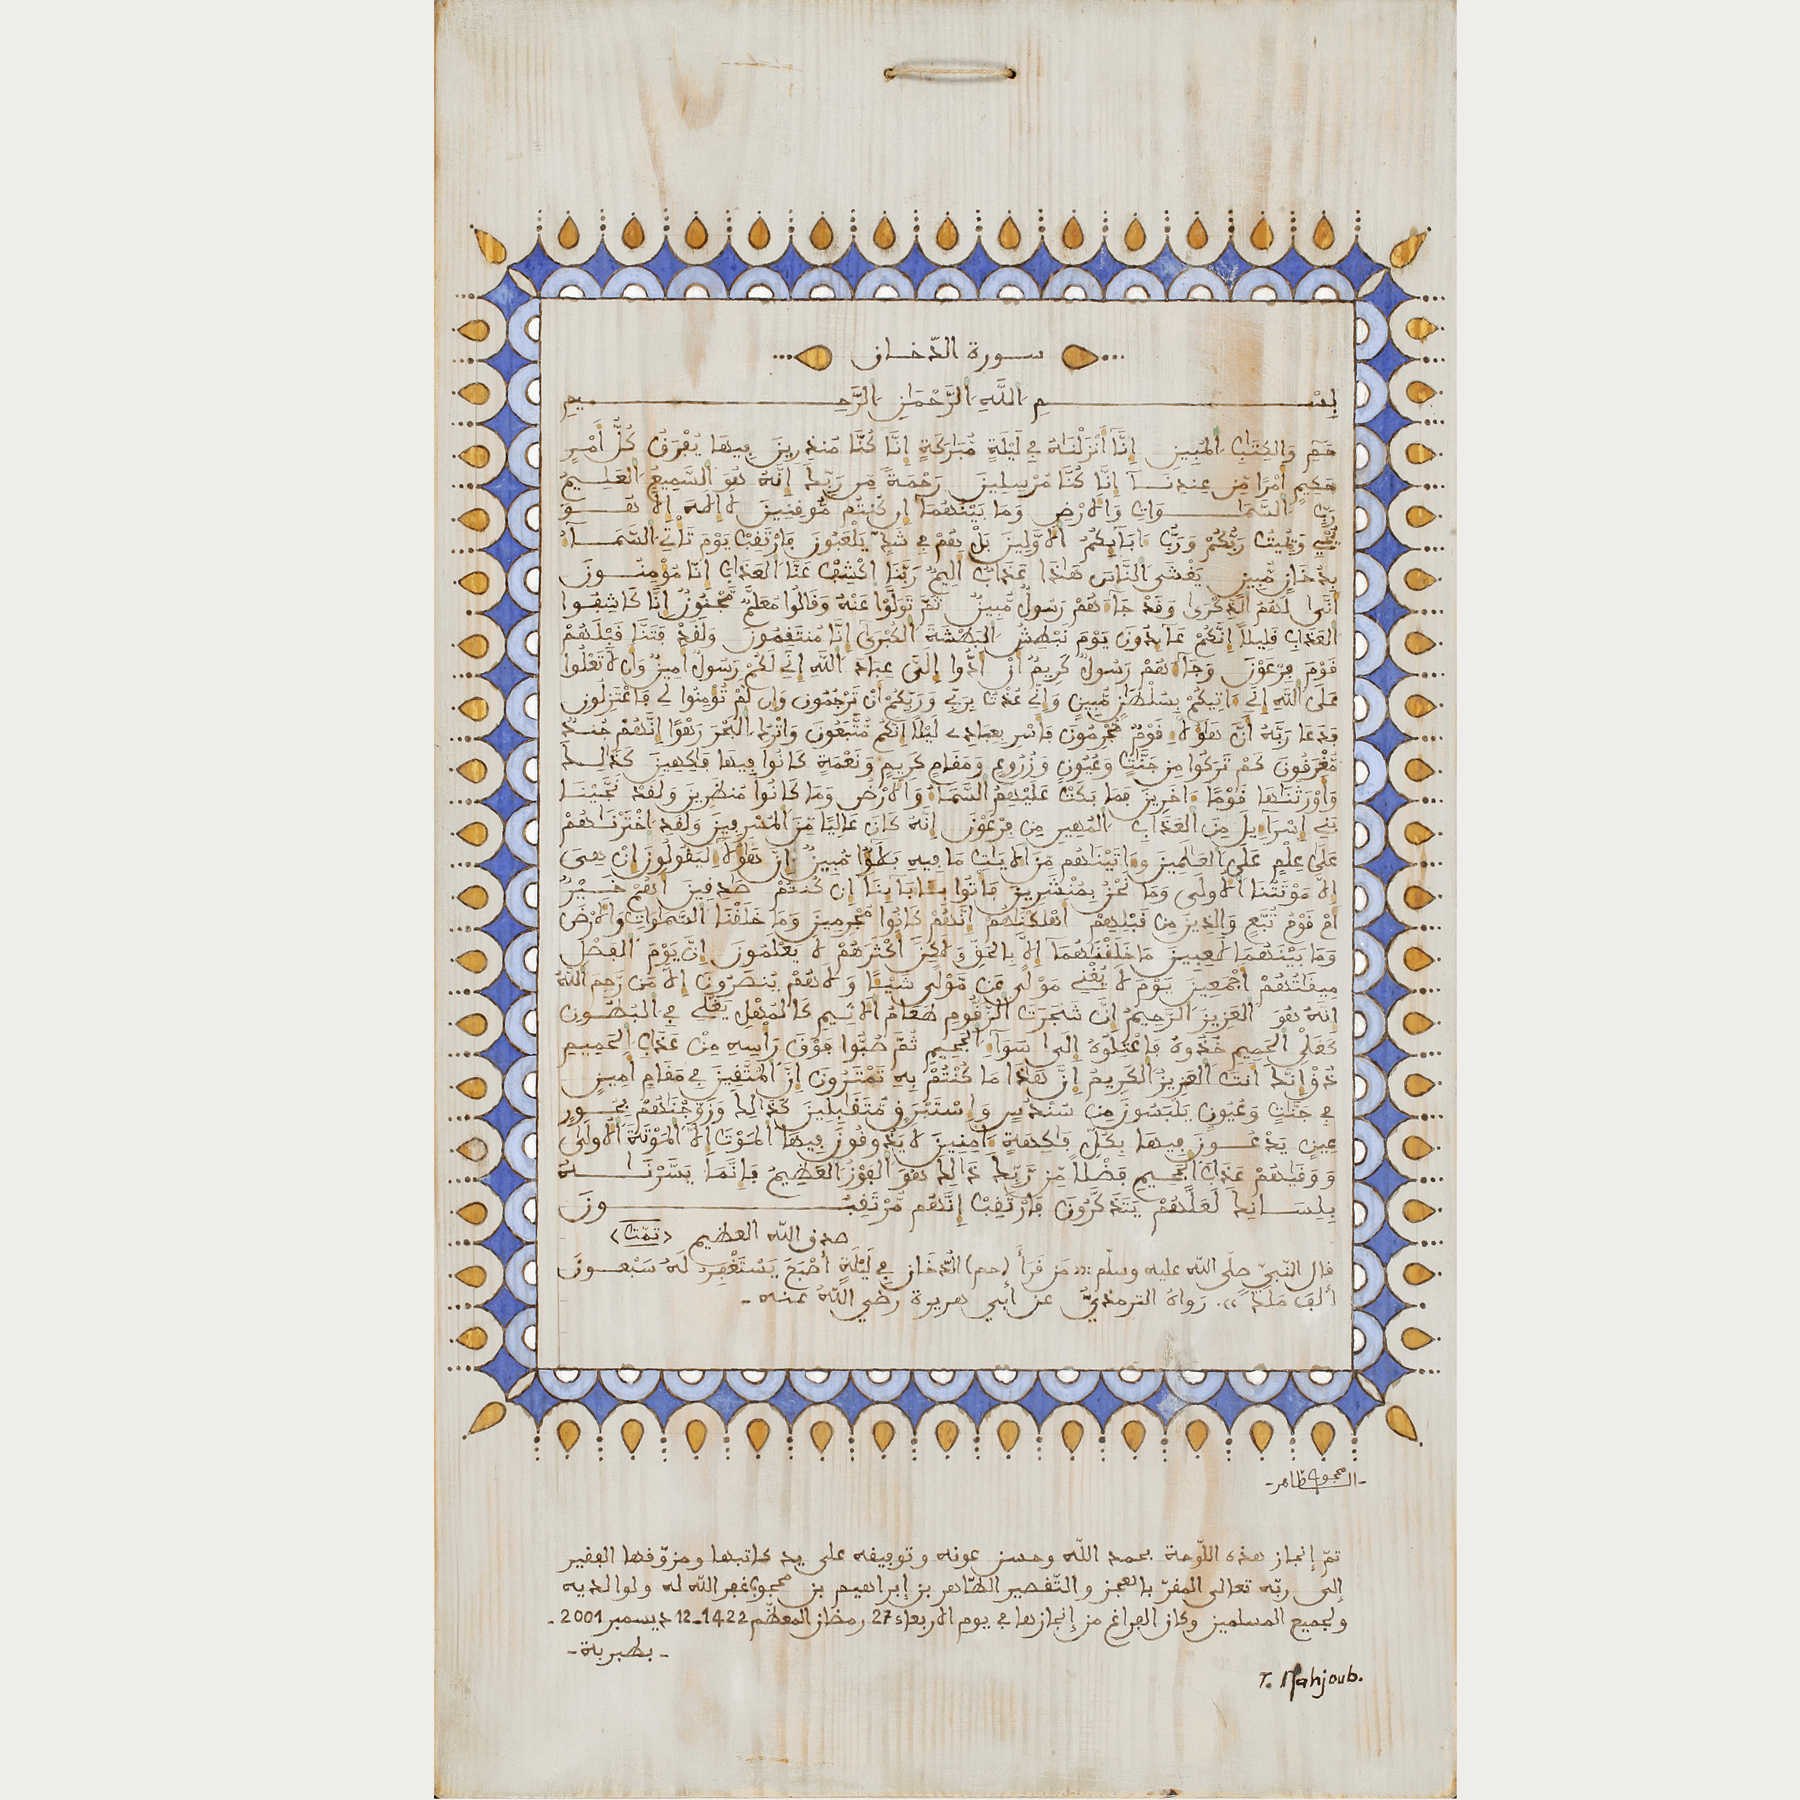 سورة الدّخان
بِسْمِ اِللَّهِ اِلرَّحْمَٰنِ اِلرَّحِيمِ
حَمِّ وَالْكِتَٰبِ اِلْمُبِينِ إِنَّآ أَنزَلْنَٰهُ فِے لَيْلَةٍ مُّبَٰرَكَةٍ اِنَّا كُنَّا مُنذِرِينَ فِيهَا يُفْرَقُ كُلُّ أَمْرٍ
حَكِيمٍ اَمْرًا مِّنْ عِندِنَآ إِنَّا كُنَّا مُرْسِلِينَ رَحْمَةً مِّن رَّبِّكَ إِنَّهُ هُوَ اَلسَّمِيعُ اُلْعَلِيمُ
رَبُّ اُلسَّمَٰوَاتِ وَالَارْضِ وَمَا بَيْنَهُمَآ إِن كُنتُم مُّوقِنِينَ لَا إِلَٰهَ إِلَّا هُوَ
يُحْيِے وَيُمِيتُ رَبُّكُمْ وَرَبُّ ءَابَآئِكُمُ اُلَاوَّلِينَ بَلْ هُمْ فِے شَكٍّ يَلْعَبُونَ فَارْتَقِبْ يَوْمَ تَاتِے اِلسَّمَآءُ
بِدُخَانٍ مُّبِينٍ يَغْشَى اَلنَّاسَ هَٰذَا عَذَابٌ اَلِيمٌ رَّبَّنَا اَكْشِفْ عَنَّا اَلْعَذَابَ إِنَّا مُؤْمِنُونَ
أَنَّىٰ لَهُمُ اُلذِّكْرَىٰ وَقَدْ جَآءَهُمْ رَسُولٌ مُّبِينٌ ثُمَّ تَوَلَّوْاْ عَنْهُ وَقَالُواْ مُعَلَّمٌ مَّجْنُونٌ اِنَّا كَاشِفُواْ
اُلْعَذَابِ قَلِيلًا اِنَّكُمْ عَآئِدُونَ يَوْمَ نَبْطِشُ اُلْبَطْشَةَ اَلْكُبْرَىٰ إِنَّا مُنتَقِمُونَ وَلَقَدْ فَتَنَّا قَبْلَهُمْ
قَوْمَ فِرْعَوْنَ وَجَآءَهُمْ رَسُولٌ كَرِيمٌ اَنَ اَدُّواْ إِلَيَّ عِبَادَ اَللَّهِ إِنِّے لَكُمْ رَسُولٌ اَمِينٌ وَأَن لَّا تَعْلُواْ
عَلَى اَللَّهِ إِنِّيَ ءَاتِيكُم بِسُلْطَٰنٍ مُّبِينٍ وَإِنِّے عُذْتُ بِرَبِّے وَرَبِّكُمُ أَن تَرْجُمُونِ وَإِن لَّمْ تُؤْمِنُواْ لِے فَاعْتَزِلُونِ
فَدَعَا رَبَّهُ أَنَّ هَٰؤُلَآءِ قَوْمٌ مُّجْرِمُونَ فَاسْرِ بِعِبَادِے لَيْلًا اِنَّكُم مُّتَّبَعُونَ وَاتْرُكِ اِلْبَحْرَ رَهْوًا اِنَّهُمْ جُندٌ
مُّغْرَقُونَ كَمْ تَرَكُواْ مِن جَنَّٰتٍ وَعُيُونٍ وَزُرُوعٍ وَمَقَامٍ كَرِيمٍ وَنَعْمَةٍ كَانُواْ فِيهَا فَٰكِهِينَ كَذَٰلِكَ
وَأَوْرَثْنَٰهَا قَوْمًا ءَاخَرِينَ فَمَا بَكَتْ عَلَيْهِمُ اُلسَّمَآءُ وَالَارْضُ وَمَا كَانُواْ مُنظَرِينَ وَلَقَدْ نَجَّيْنَا
بَنِے إِسْرَآءِيلَ مِنَ اَلْعَذَابِ اِلْمُهِينِ مِن فِرْعَوْنَ إِنَّهُ كَانَ عَالِيًا مِّنَ اَلْمُسْرِفِينَ وَلَقَدِ اِخْتَرْنَٰهُمْ
عَلَىٰ عِلْمٍ عَلَى اَلْعَٰلَمِينَ وَءَاتَيْنَٰهُم مِّنَ اَلَايَٰتِ مَا فِيهِ بَلَٰٓؤٌاْ مُّبِينٌ اِنَّ هَٰؤُلَآءِ لَيَقُولُونَ إِنْ هِيَ
إِلَّا مَوْتَتُنَا اَلُاولَىٰ وَمَا نَحْنُ بِمُنشَرِينَ فَاتُواْ بِـَٔابَآئِنَا إِن كُنتُمْ صَٰدِقِينَ أَهُمْ خَيْرٌ
اَمْ قَوْمُ تُبَّعٍ وَالذِينَ مِن قَبْلِهِمُ أَهْلَكْنَٰهُمُ إِنَّهُمْ كَانُواْ مُجْرِمِينَ وَمَا خَلَقْنَا اَلسَّمَٰوَاتِ وَالَارْضَ
وَمَا بَيْنَهُمَا لَٰعِبِينَ مَا خَلَقْنَٰهُمَآ إِلَّا بِالْحَقِّ وَلَٰكِنَّ أَكْثَرَهُمْ لَا يَعْلَمُونَ إِنَّ يَوْمَ اَلْفَصْلِ
مِيقَٰتُهُمُ أَجْمَعِينَ يَوْمَ لَا يُغْنِے مَوْلًى عَن مَّوْلًى شَيْـًٔا وَلَا هُمْ يُنصَرُونَ إِلَّا مَن رَّحِمَ اَللَّهُ
إِنَّهُ هُوَ اَلْعَزِيزُ اُلرَّحِيمُ إِنَّ شَجَرَتَ اَلزَّقُّومِ طَعَامُ اُلَاثِيمِ كَالْمُهْلِ تَغْلِے فِے اِلْبُطُونِ
كَغَلْيِ اِلْحَمِيمِ خُذُوهُ فَاعْتُلُوهُ إِلَىٰ سَوَآءِ اِلْجَحِيمِ ثُمَّ صُبُّواْ فَوْقَ رَأْسِهِ مِنْ عَذَابِ اِلْحَمِيمِ
ذُقِ اِنَّكَ أَنتَ اَلْعَزِيزُ اُلْكَرِيمُ إِنَّ هَٰذَا مَا كُنتُم بِهِ تَمْتَرُونَ إِنَّ اَلْمُتَّقِينَ فِے مُقَامٍ اَمِينٍ
فِے جَنَّٰتٍ وَعُيُونٍ يَلْبَسُونَ مِن سُندُسٍ وَإِسْتَبْرَقٍ مُّتَقَٰبِلِينَ كَذَٰلِكَ وَزَوَّجْنَٰهُم بِحُورٍ
عِينٍ يَدْعُونَ فِيهَا بِكُلِّ فَٰكِهَةٍ ءَامِنِينَ لَا يَذُوقُونَ فِيهَا اَلْمَوْتَ إِلَّا اَلْمَوْتَةَ اَلُاولَىٰ
وَوَقَىٰهُمْ عَذَابَ اَلْجَحِيمِ فَضْلًا مِّن رَّبِّكَ ذَٰلِكَ هُوَ اَلْفَوْزُ اُلْعَظِيمُ فَإِنَّمَا يَسَّرْنَٰهُ
بِلِسَانِكَ لَعَلَّهُمْ يَتَذَكَّرُونَ فَارْتَقِبِ اِنَّهُم مُّرْتَقِبُونَ
صدق اللّه العظيم (تمّت)
قال النّبيّ صلّى اللّه عليه وسلّم: «مَن قَرَأَ (حم) الدُّخَانَ فِي لَيْلَةٍ أَصْبَحَ يَسْتَغْفِرُ لَهُ سَبْعُونَ
أَلْفَ مَلَكٍ». رَوَاهُ الترمذيُّ عن أبي هريرة رَضي اللّهُ عنه -
- المحجوب الطّاهر -
تمّ إنجاز هذه اللّوحة بحمد اللّه وحسن عونه وتوفيقه على يد كاتبها ومزوّقها الفقير
إلى ربّه تعالى المقرّ بالعجز والتّقصير الطّاهر بن إبراهيم بن محجوب غفر اللّه له ولوالديه
ولجميع المسلمين وكان الفراغ من إنجازها في يوم الاربعاء 27 رمضان المعظّم 1422 - 12 ديسمبر 2001 -
- بطبربة -
T. Mahjoub.